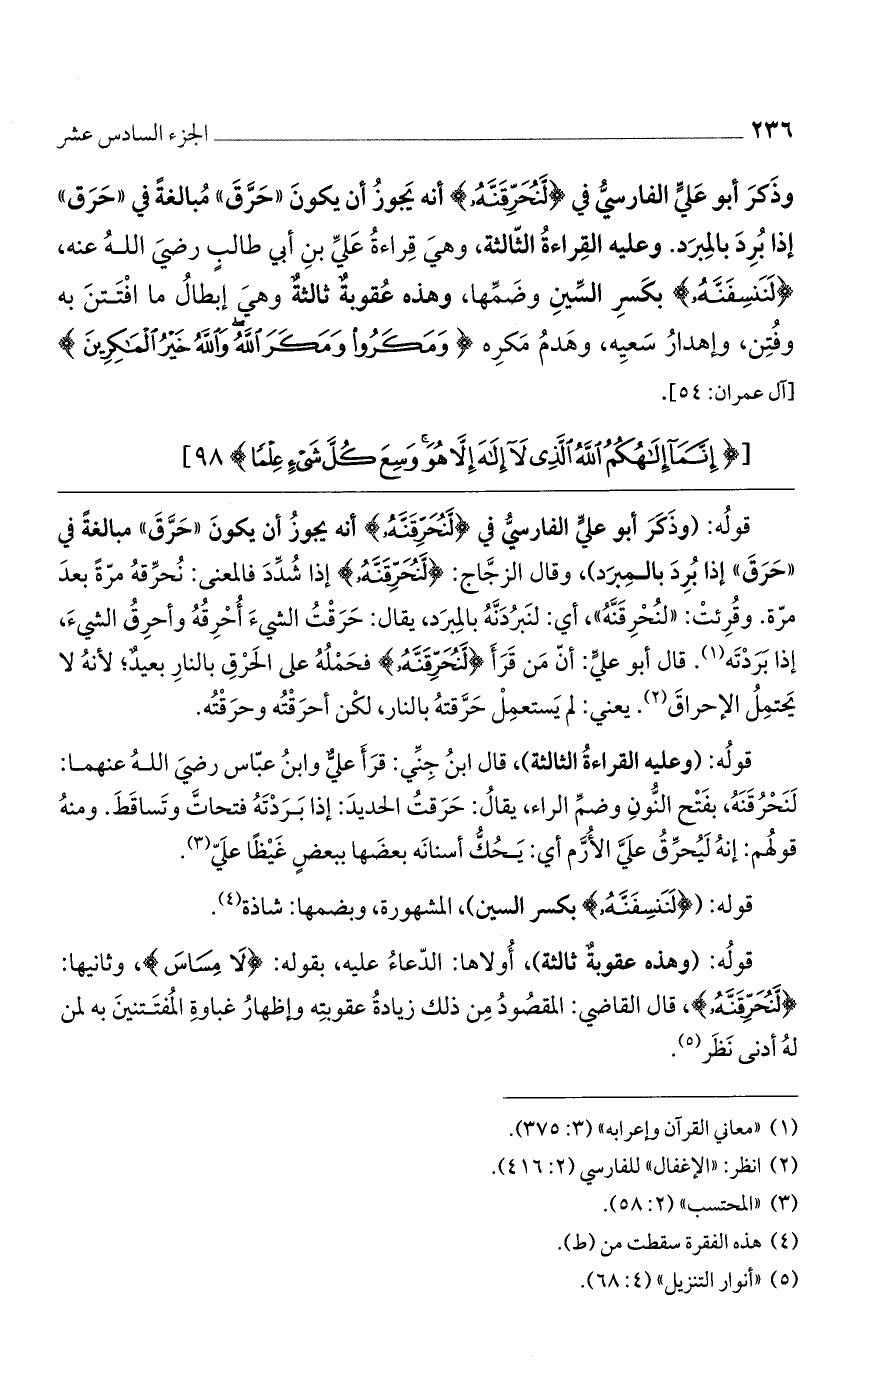 ٢٣٦ الجزء السادس عشر
وذَكرَ أبو عَليٍّ الفارسيُّ في ﴿لَّنُحَرِّقَنَّهُۥ﴾ أنه يَجوزُ أن يكونَ «حَرَّقَ» مُبالغةً في «حَرَق»
إذا بُرِدَ بالمِبرَد. وعليه القِراءةُ الثّالثة، وهيَ قِراءةُ عَليِّ بنِ أبي طالبٍ رضيَ اللـهُ عنه،
﴿لَنَنسِفَنَّهُۥ﴾ بكَسرِ السِّينِ وضَمِّها، وهذه عُقوبةٌ ثالثةٌ وهيَ إبطالُ ما افْتَـتنَ به
وفُتِن، وإهدارُ سَعيِه، وهَدمُ مَكرِه ﴿وَمَكَرُوا۟ وَمَكَرَ ٱللَّهُ ۖ وَٱللَّهُ خَيْرُ ٱلْمَـٰكِرِينَ﴾
[آل عمران: ٥٤].
[﴿إِنَّمَآ إِلَـٰهُكُمُ ٱللَّهُ ٱلَّذِى لَآ إِلَـٰهَ إِلَّا هُوَ ۚ وَسِعَ كُلَّ شَىْءٍ عِلْمًا﴾ ٩٨]
قولُه: (وذَكَرَ أبو عليٍّ الفارسيُّ في ﴿لَّنُحَرِّقَنَّهُۥ﴾ أنه يجوزُ أن يكونَ «حَرَّقَ» مبالغةً في
«حَرَقَ» إذا بُرِدَ بالـمِبرَد)، وقال الزجَّاج: ﴿لَّنُحَرِّقَنَّهُۥ﴾ إذا شُدِّدَ فالمعنى: نُحرِّقهُ مرّةً بعدَ
مرّة. وقُرِئتْ: «لنُحْرِقَنَّهُ»، أي: لنَبرُدَنَّهُ بالمِبرَد، يقال: حَرَقْتُ الشيءَ أُحْرِقُهُ وأحرِقُ الشيءَ،
إذا بَرَدْتَه(١). قال أبو عليٍّ: أنّ مَن قَرَأَ ﴿لَّنُحَرِّقَنَّهُۥ﴾ فحَمْلُهُ على الحَرْقِ بالنارِ بعيدٌ؛ لأنهُ لا
يَحتمِلُ الإحراقَ(٢). يعني: لم يَستعمِلْ حَرَّقتهُ بالنار، لكن أحرَقْتُه وحرَقْتُه.
قولُه: (وعليه القراءةُ الثالثة)، قال ابنُ جِنِّي: قرَأَ عليٌّ وابنُ عبّاس رضيَ اللـهُ عنهمـا:
لَنَحْرُقَنَهُ، بفَتْح النُّونِ وضمِّ الراء، يقالُ: حَرَقتُ الحديدَ: إذا بَـرَدْتَهُ فتحاتَّ وتَساقَطَ. ومنهُ
قولُهم: إنهُ لَيُحرِّقُ علَيَّ الأُرَّم أي: يَـحُكُّ أسنانَه بعضَها ببعضٍ غَيْظًا عليّ(٣).
قوله: (﴿لَنَنسِفَنَّهُۥ﴾ بكسر السين)، المشهورة، وبضمها: شاذة(٤).
قولُه: (وهذه عقوبةٌ ثالثة)، أُولاها: الدّعاءُ عليه، بقوله: ﴿لَا مِسَاسَ﴾، وثانيها:
﴿لَّنُحَرِّقَنَّهُۥ﴾، قال القاضي: المقصُودُ مِن ذلك زيادةُ عقوبتِه وإظهارُ غباوةِ المُفتَـتنينَ به لمن
لهُ أدنى نَظَر(٥).
(١) «معاني القرآن وإعرابه» (٣: ٣٧٥).
(٢) انظر: «الإغفال» للفارسي (٢: ٤١٦).
(٣) «المحتسب» (٢: ٥٨).
(٤) هذه الفقرة سقطت من (ط).
(٥) «أنوار التنزيل» (٤: ٦٨).